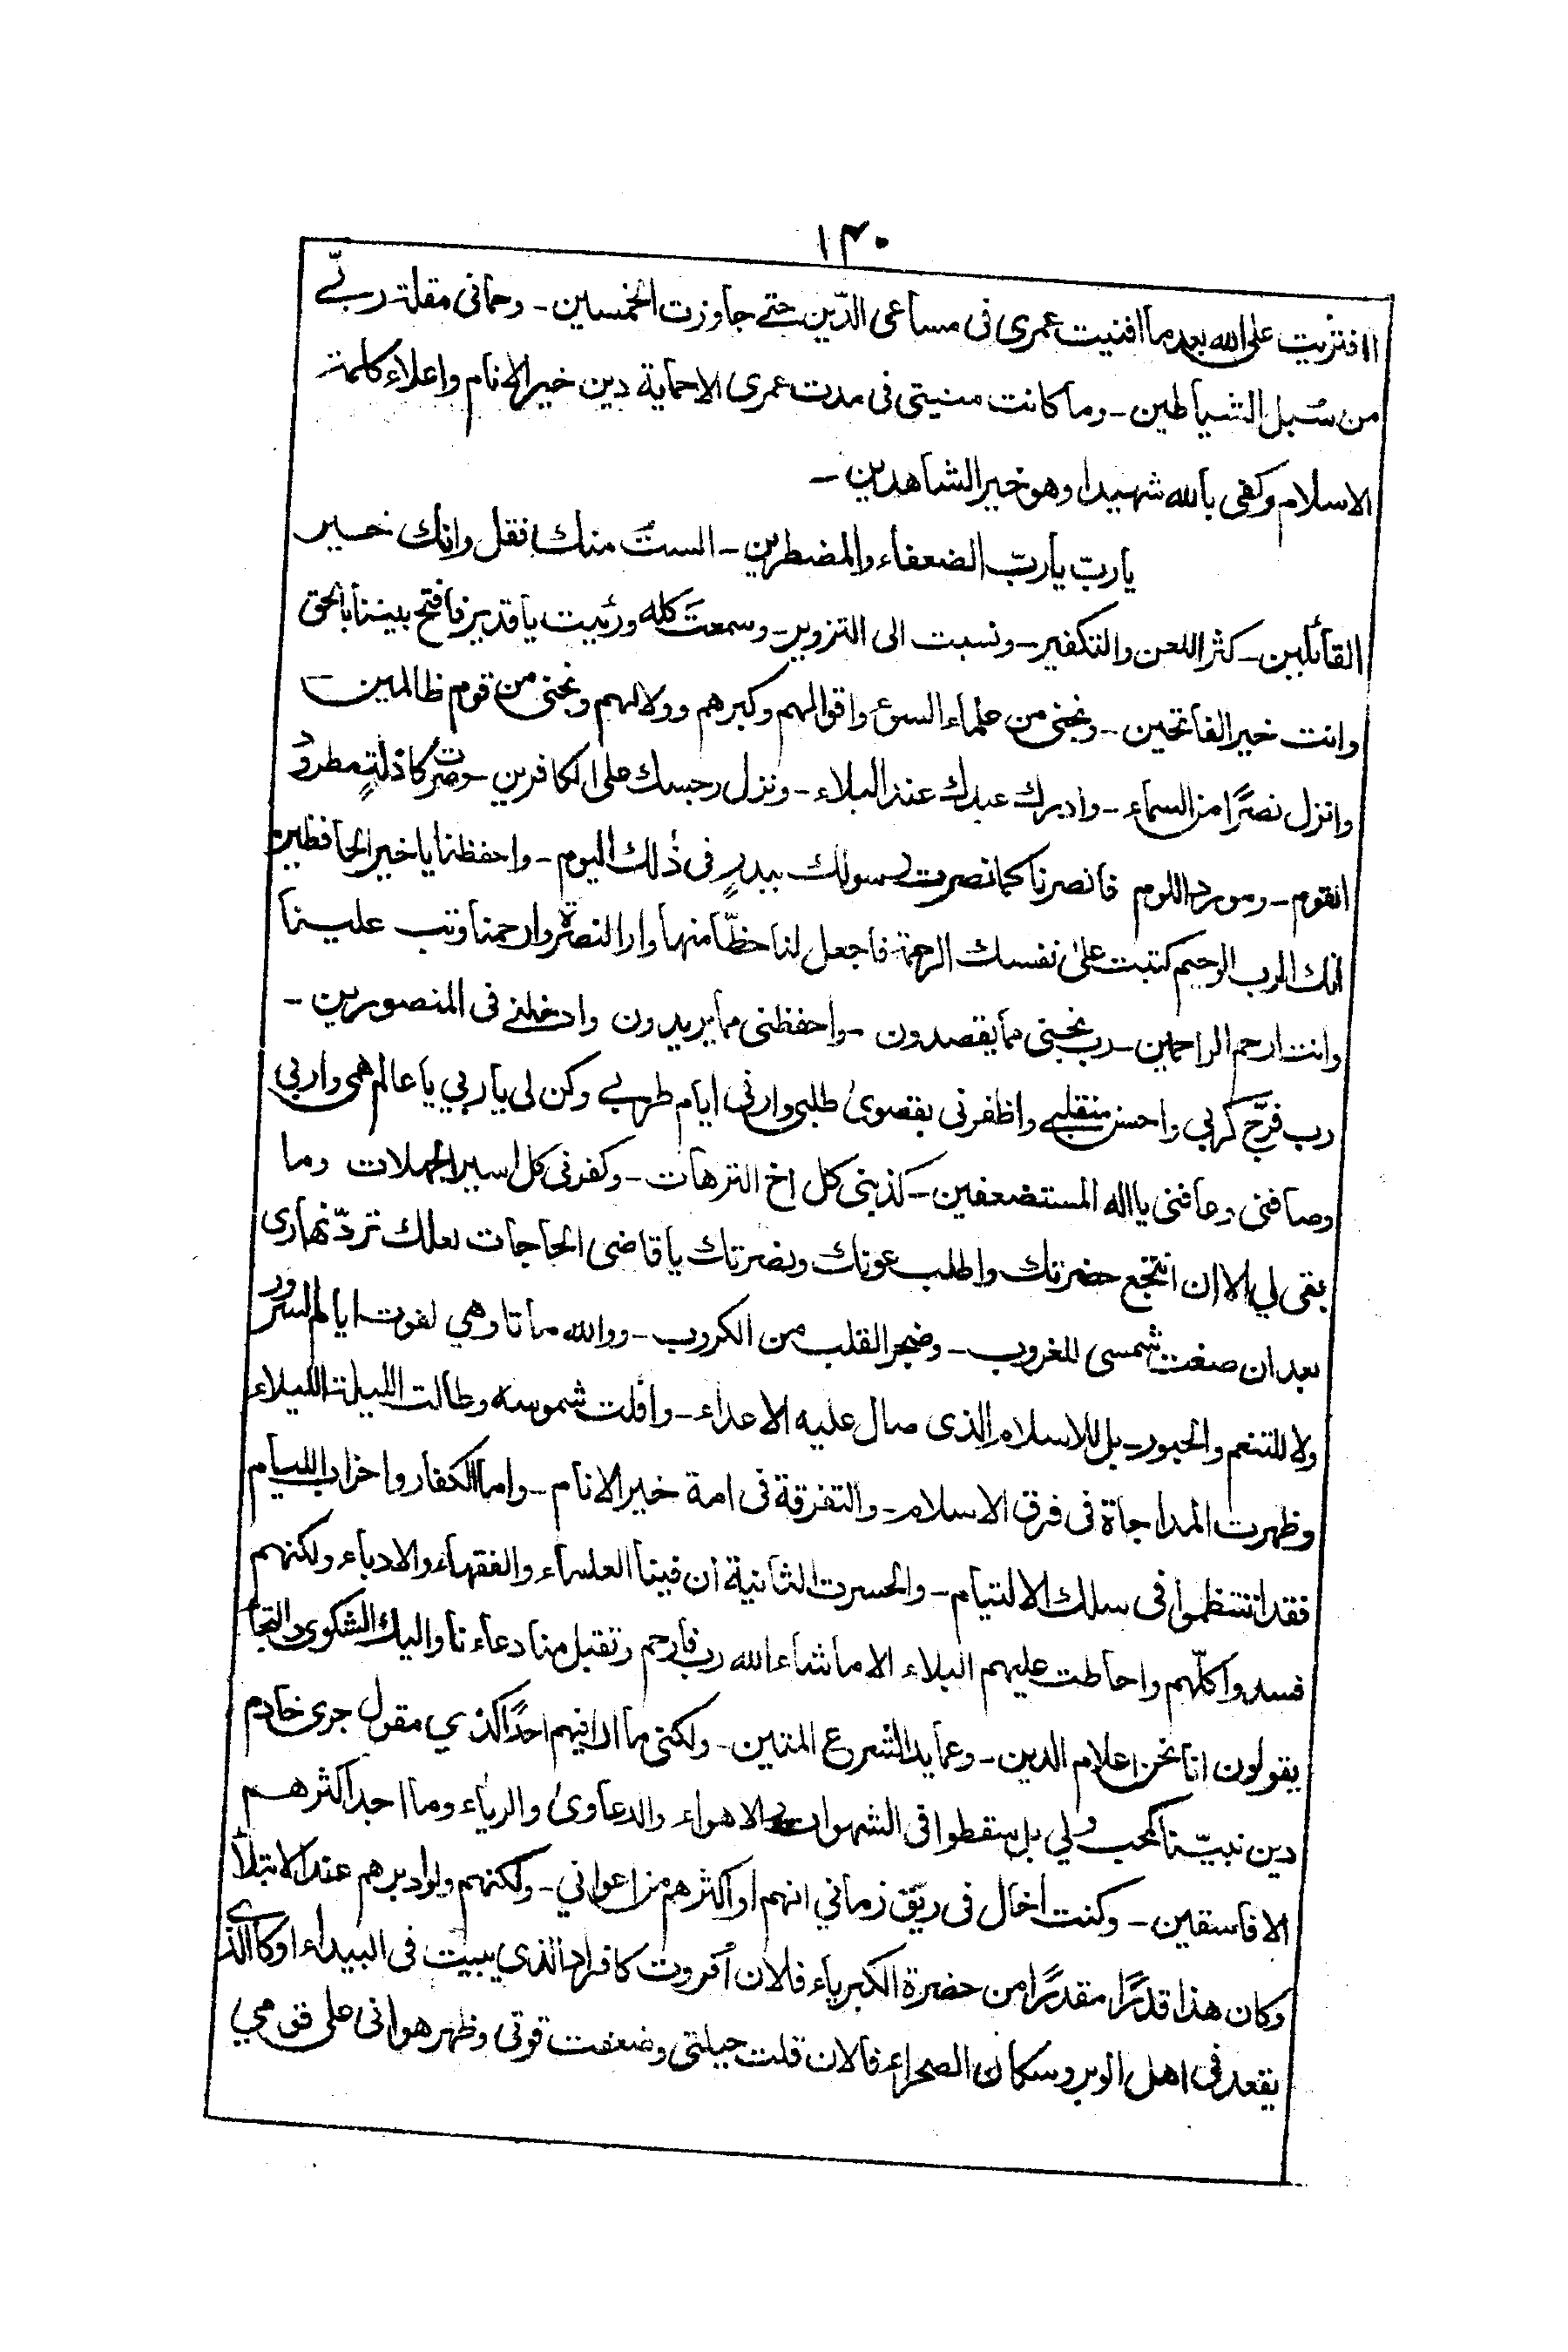 ١٣٠
اافتريت على الله بعد ما افنيت عمرى فى مساعى الدّين حتے جاوزت الخمسين - وحمانى مقلة ربّے
من سُبل الشياطين - وما كانت منيتى فى مدت عمرى الاحماية دين خير الانام واعلاء كلمة
الاسلام وكفى بالله شهيدا وهو خير الشاهدين -
ياربّ ياربّ الضعفاء والمضطرين - الستُ منك فقل وانك خير
القائلين - كثر اللعن والتكفير - ونسبت الى التزوير - وسمعتَ كله ورئيت يا قدير فافتح بيننا بالحق
وانت خير الفاتحين - ونجنى من علماء السوء واقوالهم وكبرهم ودلالهم ونجنى من قوم ظالمين
وانزل نصرًا من السماء - وادرك عبدك عند البلاء - ونزل رجسك على الكافرين - وصرتُ كاذلّةٍ مطرود
القوم - ومورد اللوم فانصرنا كما نصرت رسولك ببدرٍ فى ذٰلك اليوم - واحفظنا يا خير الحافظين
انك الرب الرحيم كتبت علىٰ نفسك الرحمة فاجعل لنا حظًّا منها وارا النصرة وارحمنا وتب علينا
وانت ارحم الراحمين - رب نجنى مما يقصدون - واحفظنى مما يريدون وادخلنے فى المنصورين -
رب فرّج كربي واحسن منقلبے واظفرنى بقصوىٰ طلبى وارنى ايام طربے وكن لى يا ربي يا عالم همى واربى
وصافنى وعافنى يا اله المستضعفين - كذبنى كل اخ الترهات - وكفرنى كل اسير الجهلات وما
بقى لي الا ان انتجع حضرتك واطلب عونك ونصرتك يا قاضى الحاجات لعلك تردّ نهارى
بعد ان صغت شمسى للغروب - وضجر القلب من الكروب - ووالله ما تاوهي لفوت ايام السرور
ولا للتنعم والحبور - بل للاسلام الذى صال عليه الاعداء - وافلت شموسه وطالت الليلة الليلاء
وظهرت المداجاة فى فرق الاسلام - والتفرقة فى امة خير الانام - واما الكفار واحزاب الليام
فقد انتظموا فى سلك الالتيام - والحسرت الثانية ان فينا العلماء والفقهاء والادباء ولكنهم
فسدوا كلّهم واحاطت عليهم البلاء الا ما شاء الله رب فارحم وتقبل منا دعاءنا واليك الشكوى والتجا
يقولون انا نحن اعلام الدين - وعمايد الشرع المتين - ولكنى ما ارا فيهم احدًا كذي مقول جرى خادم
دين نبيّنا كمحب ولي بل سقطوا فى الشهوات والاهواء والدعاوىٰ والرياء وما اجد اكثرهم
الا فاسقين - وكنت اخال فى ريّق زماني انهم او اكثرهم من اعواني - ولكنهم ولوا دبرهم عند الابتلأ
وكان هذا قدرًا مقدرًا من حضرة الكبرياء فلان اُفردت كافراد الذي يبيت فى البيداء او كالذى
يقعد فى اهل الوبر وسكان الصحراء فالان قلت حيلتى وضعفت قوتى وظهر هوانى على قومي